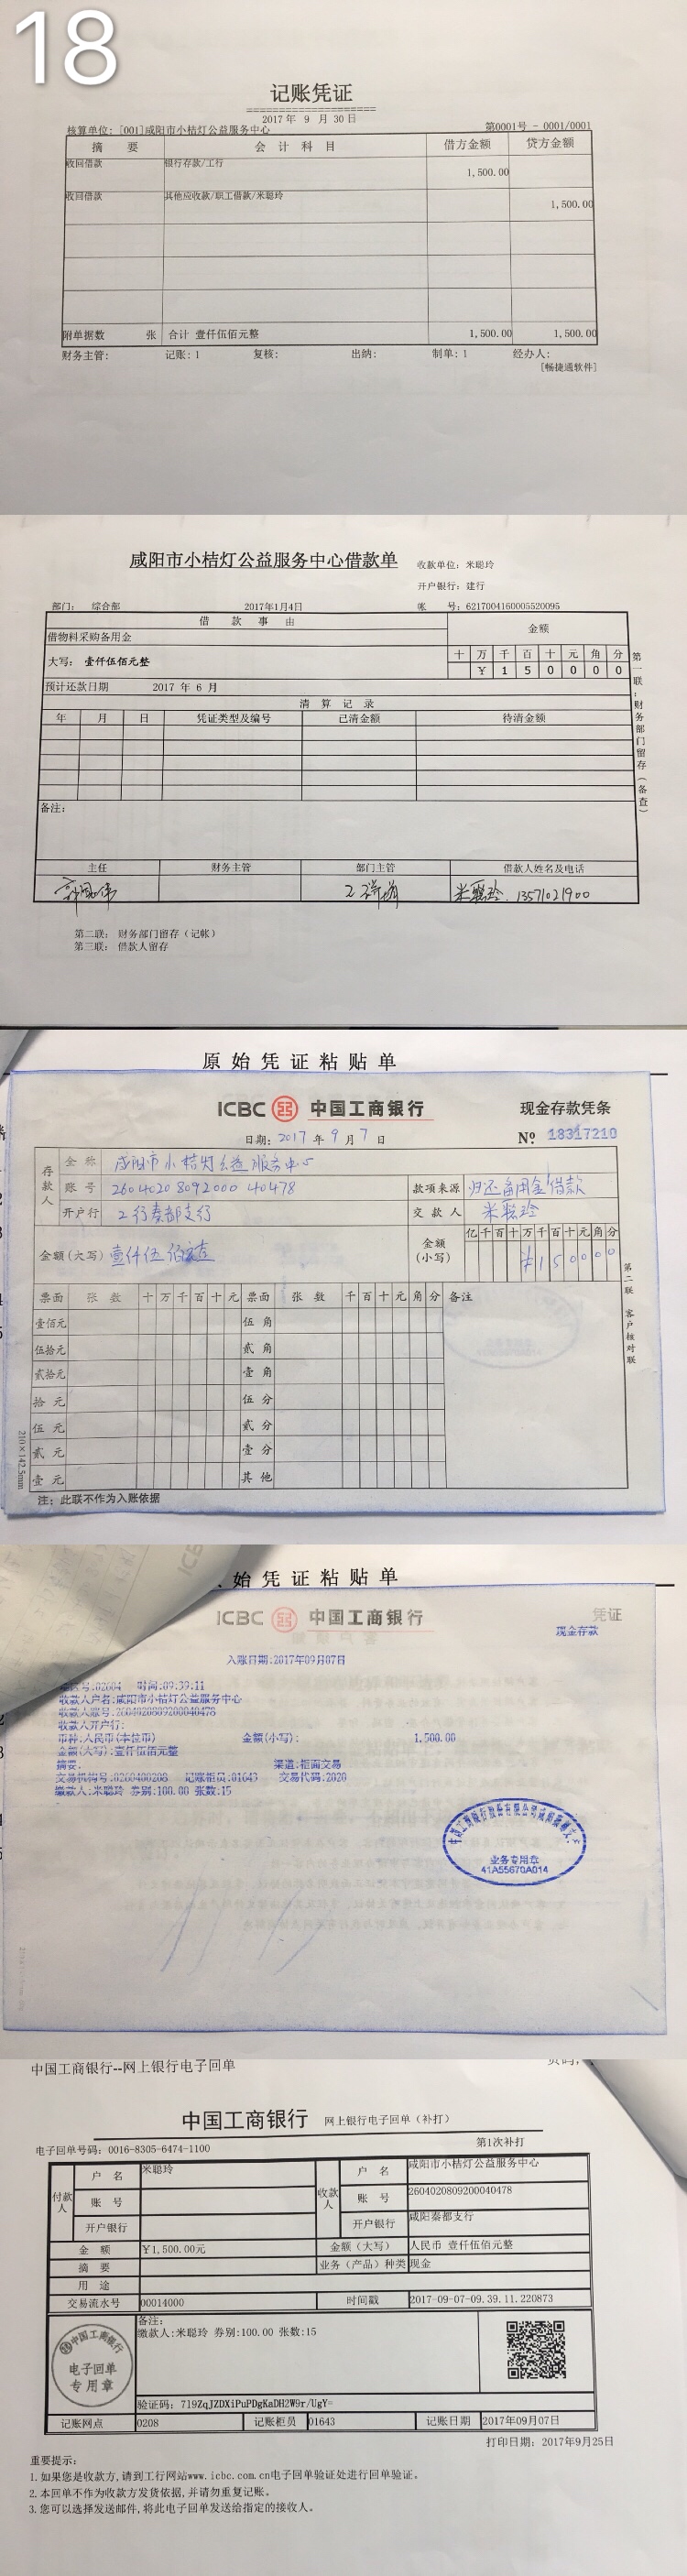 18
记账凭证
2017 年 9 月 30日
核算单位: [001]咸阳市小桔灯公益服务中心 第0001号 - 0001/0001
摘 要 会 计 科 目 借方金额 贷方金额
收回借款 银行存款/工行 1,500.00
收回借款 其他应收款/职工借款/米聪玲 1,500.00
附单据数 张 合计 壹仟伍佰元整 1,500.00 1,500.00
财务主管: 记账: 1 复核: 出纳: 制单: 1 经办人:
[畅捷通软件]
咸阳市小桔灯公益服务中心借款单
收款单位: 米聪玲
开户银行: 建行
部门: 综合部 2017年1月4日 帐 号: 6217004160005520095
借 款 事 由 金额
借物料采购备用金
十 万 千 百 十 元 角 分
大写: 壹仟伍佰元整 ¥ 1 5 0 0 0 0
预计还款日期 2017 年 6 月
清 算 记 录
年 月 日 凭证类型及编号 已清金额 待清金额
备注:
第一联:财务部门留存(备查)
主任 财务主管 部门主管 借款人姓名及电话
米聪玲. 13571021900
第二联: 财务部门留存(记帐)
第三联: 借款人留存
原始凭证粘贴单
ICBC 中国工商银行 现金存款凭条
日期: 2017 年 9 月 7 日 № 18317210
存款人
全 称 咸阳市小桔灯公益服务中心
账 号 2604020809200040478 款项来源 归还备用金借款
开户行 工行秦都支行 交 款 人 米聪玲
金额(大写) 壹仟伍佰元整 金额(小写) 亿千百十万千百十元角分
¥150000
票面 张 数 十万千百十元 票面 张 数 千百十元角分 备注
壹佰元 伍 角
伍拾元 贰 角
贰拾元 壹 角
拾 元 伍 分
伍 元 贰 分
贰 元 壹 分
壹 元 其 他
第二联 客户核对联
210×142.5mm
注: 此联不作为入账依据
始凭证粘贴单
ICBC 中国工商银行 凭证
现金存款
入账日期:2017年09月07日
时间:09:39:11
收款人户名:咸阳市小桔灯公益服务中心
收款人账号:2604020809200040478
收款人开户行:
币种:人民币(本位币) 金额(小写): 1,500.00
金额(大写):壹仟伍佰元整
摘要: 渠道:柜面交易
交易机构号:0260400208 记账柜员:01643 交易代码:2020
缴款人:米聪玲 券别:100.00 张数:15
业务专用章
41A55670A014
中国工商银行--网上银行电子回单
页码,
中国工商银行 网上银行电子回单 (补打)
电子回单号码: 0016-8305-6474-1100 第1次补打
付款人 户 名 米聪玲 收款人 户 名 咸阳市小桔灯公益服务中心
账 号 账 号 2604020809200040478
开户银行 开户银行 咸阳秦都支行
金 额 ¥1,500.00元 金额(大写) 人民币 壹仟伍佰元整
摘 要 业务(产品)种类 现金
用 途
交易流水号 00014000 时间戳 2017-09-07-09.39.11.220873
中国工商银行
电子回单
专用章
备注:
缴款人:米聪玲 券别:100.00 张数:15
验证码: 719ZqJZDXiPuPDgKaDH2W9r/UgY=
记账网点 0208 记账柜员 01643 记账日期 2017年09月07日
打印日期: 2017年9月25日
重要提示:
1.如果您是收款方,请到工行网站www.icbc.com.cn电子回单验证处进行回单验证。
2.本回单不作为收款方发货依据,并请勿重复记账。
3.您可以选择发送邮件,将此电子回单发送给指定的接收人。